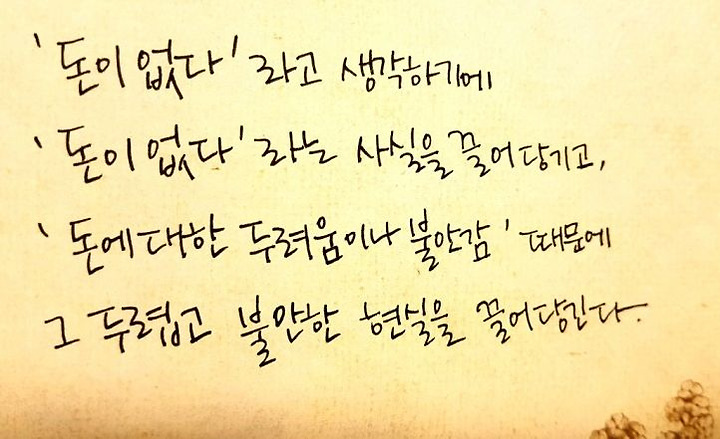 '돈이 없다'라고 생각하기에
'돈이 없다'라는 사실을 끌어당기고,
'돈에 대한 두려움이나 불안감' 때문에
그 두렵고 불안한 현실을 끌어당긴다.